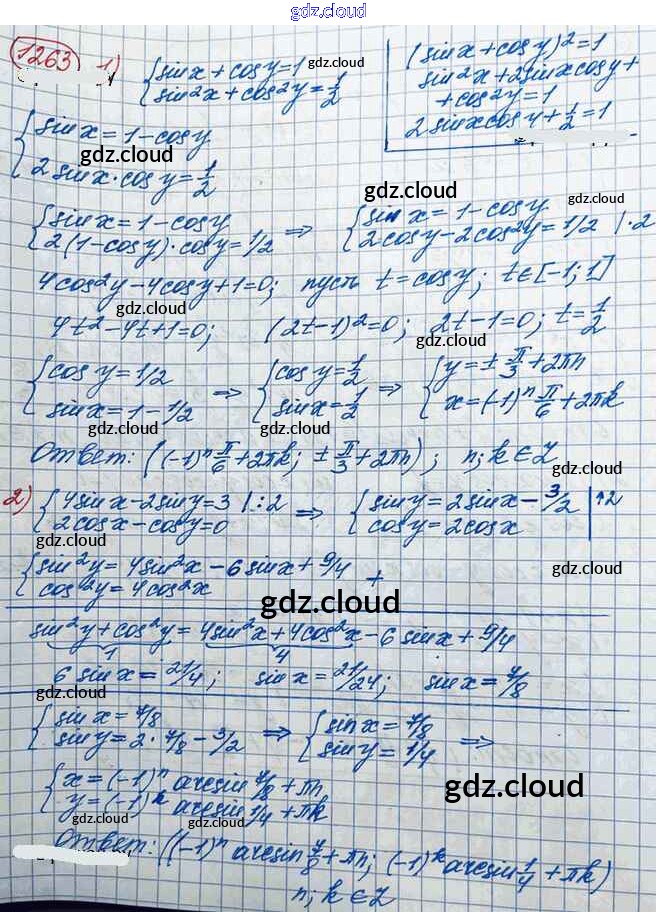 gdz.cloud
1263 1) {sin x + cos y = 1
sin²x + cos²y = 1/2
gdz.cloud
(sin x + cos y)² = 1
sin²x + 2 sin x cos y +
+ cos²y = 1
2 sin x cos y + 1/2 = 1
gdz.cloud
{sin x = 1 - cos y
2 sin x · cos y = 1/2
gdz.cloud
gdz.cloud
gdz.cloud
{sin x = 1 - cos y
2(1 - cos y) · cos y = 1/2 ⇒ {sin x = 1 - cos y
2 cos y - 2 cos²y = 1/2 | · 2
gdz.cloud
4 cos²y - 4 cos y + 1 = 0; пусть t = cos y; t ∈ [-1; 1]
gdz.cloud
4t² - 4t + 1 = 0; (2t - 1)² = 0; 2t - 1 = 0; t = 1/2
gdz.cloud
{cos y = 1/2
sin x = 1 - 1/2 ⇒ {cos y = 1/2
sin x = 1/2 ⇒ {y = ± π/3 + 2πn
x = (-1)ⁿ π/6 + 2πk
gdz.cloud
gdz.cloud
Ответ: ((-1)ⁿ π/6 + 2πk; ± π/3 + 2πn); n; k ∈ Z
gdz.cloud
2) {4 sin x - 2 sin y = 3 | :2
2 cos x - cos y = 0 ⇒ {sin y = 2 sin x - 3/2 | ↑2
cos y = 2 cos x
gdz.cloud
{sin²y = 4 sin²x - 6 sin x + 9/4
cos²y = 4 cos²x +
gdz.cloud
gdz.cloud
sin²y + cos²y = 4 sin²x + 4 cos²x - 6 sin x + 9/4
1 4
gdz.cloud
6 sin x = 21/4; sin x = 21/24; sin x = 7/8
gdz.cloud
{sin x = 7/8
sin y = 2 · 7/8 - 3/2 ⇒ {sin x = 7/8
sin y = 1/4 ⇒
gdz.cloud
{x = (-1)ⁿ arcsin 7/8 + πn
y = (-1)ᵏ arcsin 1/4 + πk
gdz.cloud
gdz.cloud
Ответ: ((-1)ⁿ arcsin 7/8 + πn; (-1)ᵏ arcsin 1/4 + πk)
n; k ∈ Z